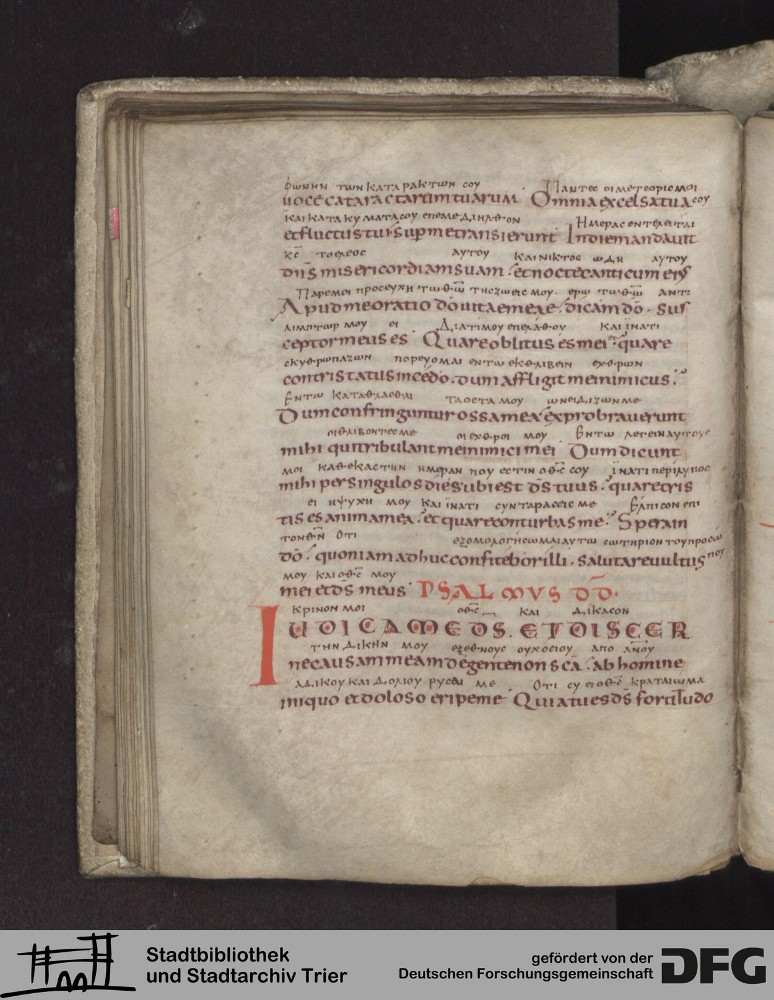 φωνην των καταρακτων σου Παντεσ οι μετεορισμοι
uoce cataractarum tuarum. Omnia excelsa tua σου
και κατα κυματα σου επ εμε διηλθον Ημερασ εντελειται
et fluctus tui super me transierunt In die mandauit
κσ το ελεοσ αυτου και νικτοσ ωδη αυτου
dns misericordiam suam. et nocte canticum eius
Παρ εμοι προσευχη τω θω τησ ζωεισ μου. ερω τω θω αντι
Apud me oratio do uitae meae. dicam do. sus
λιμπτωρ μου ει Διατι μου επελαθου και ινατι
ceptor meus es. Quare oblitus es mei. quare
σκυθρωπαζων πορευομαι εν τω εκθλιβειν εχθρων
contristatus incedo. dum affligit me inimicus.
Εν τω καταθλασθαι τα οστα μου ωνειδιζων με
Dum confringuntur ossa mea exprobrauerunt
οι θλιβοντεσ με οι εχθροι μου Εν τω λεγειν αυτουσ
mihi qui tribulant me inimici mei Dum dicunt
μοι καθ εκαστην ημεραν που εστιν ο θσ σου ινατι περιλυποσ
mihi per singulos dies ubi est ds tuus. quare tris
ει η ψυχη μου και ινατι συνταρασεισ με Ελπισον επι
tis es anima mea. et quare conturbas me. Spera in
τον θν Οτι εξομολογησωμαι αυτω σωτηριον του προσω
do. quoniam adhuc confitebor illi. salutare uultus που
μου και ο θσ μου
mei et ds meus PSALMUS DD.
Κρινον μοι ο θσ και δικασον
IUDICA ME DS. ET DISCER
την δικην μου εξ εθνουσ ουχ οσιου απο ανου
ne causam meam de gente non sca. ab homine
αδικου και δολιου ρυσαι με Οτι συ ει ο θσ κραταιωμα
iniquo et doloso eripe me. Quia tu es ds fortitudo
Stadtbibliothek
und Stadtarchiv Trier
gefördert von der
Deutschen Forschungsgemeinschaft
DFG